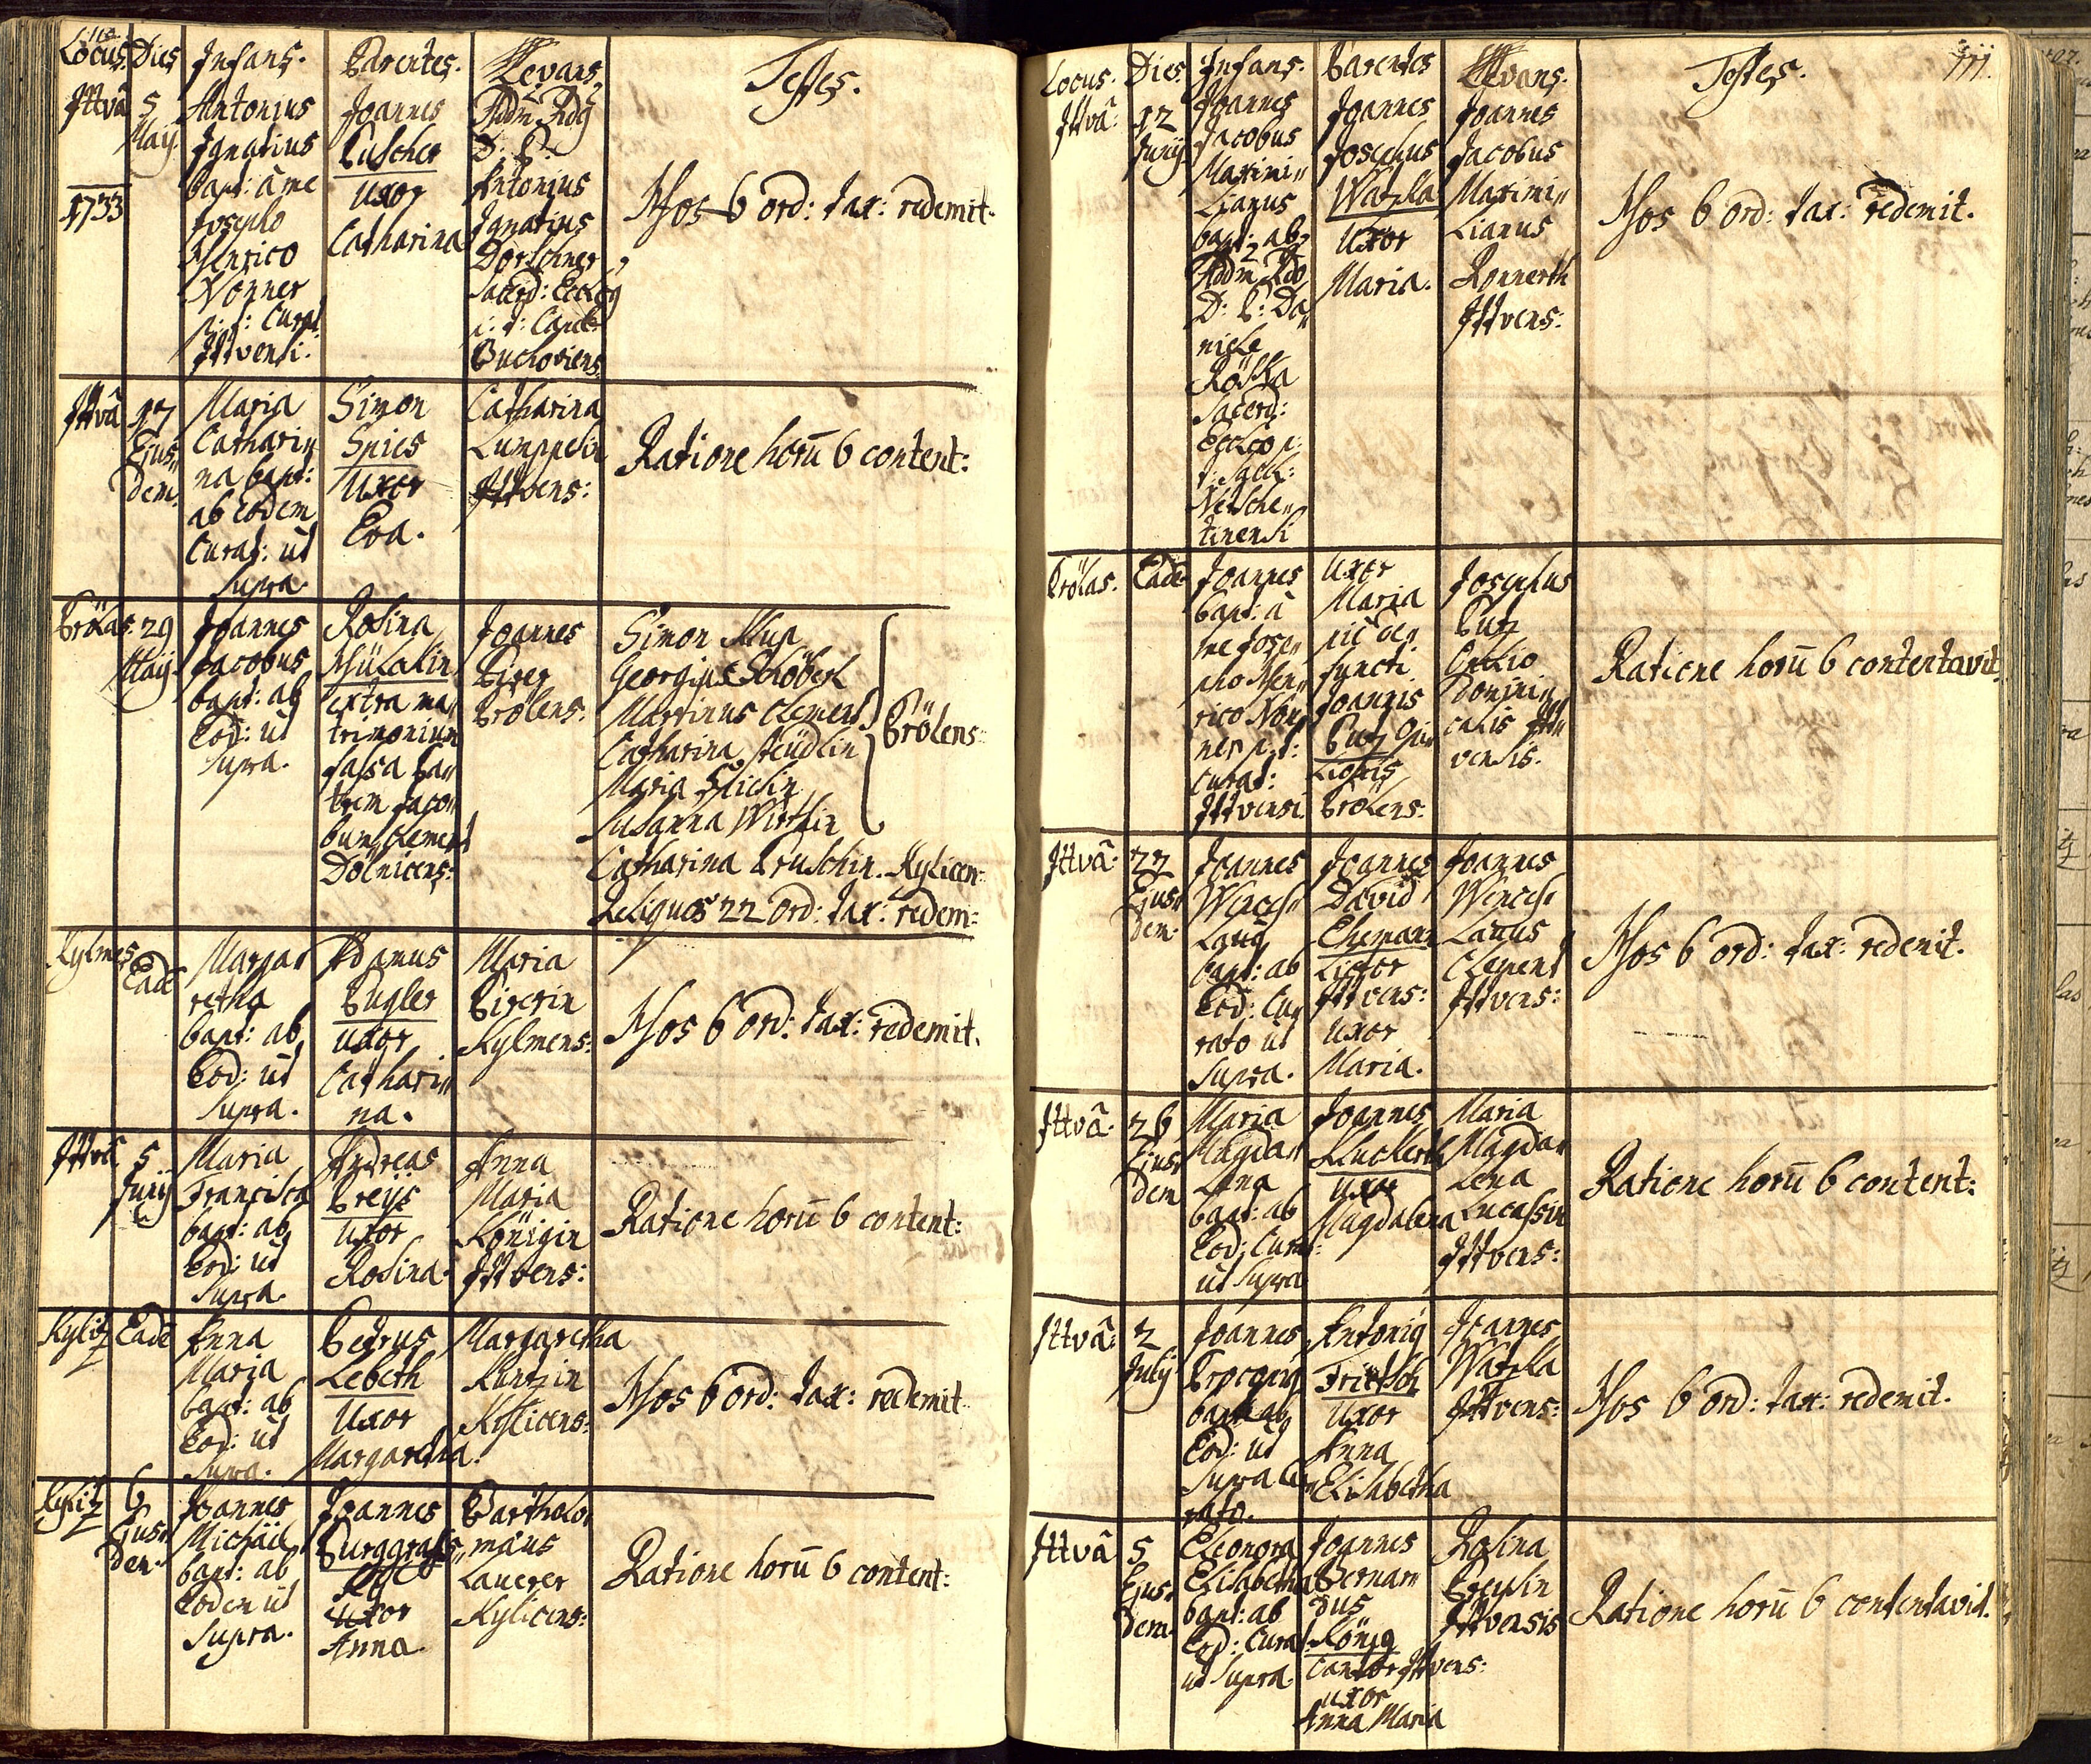 110.
Locus. Dies Infans. Parentes. Levans. Testes.
Ittvâ 5 Maÿ. 1733
Antonius
Ignatius
bapt: à me
Josepho
Henrico
Nonner
p: t: Curat
Ittvensi.
Joannes
Puscher
Uxor
Catharina
Adm Rdg
D: P:
Antonius
Ignatius
Dorschner
Sacerd: Eccleg
p: t: Capel:
Buchoviens:
Hos 6 ord: tax: redemit.
Ittvâ 17 Ejus„ dem.
Maria
Cathari„
na bapt:
ab eodem
Curat: ut
supra.
Simon
Spies
Uxor
Eva.
Catharina
Lumppelin
Ittvens:
Ratione horu 6 content:
Prölas: 29 Maÿ.
Joannes
Jacobus
bapt: ab
Eod: ut
supra.
Rosina
extra ma„
trimonium
fassa Pa„
trem Jaco„
bum Clement
Dölnicens:
Joannes
Prölens:
Simon
Martinus Clement
Catharina
Maria
Susanna Wirthin
Prölens:
Catharina Pruschin. Kylicen:
Reliquos 22 ord: tax: redem:
Kylmes Eadē
Marga„
retha
bapt: ab
Eod: ut
supra.
Adamus
Pugler
uxor
Cathari„
na.
Maria
Pirerin
Kylmens:
Hos 6 ord: tax: redemit.
Ittvâ 5 Junÿ
Maria
Francisca
bapt: ab
Eod: ut
supra.
Andreas
Preÿs
Uxor
Rosina.
Anna
Maria
Königin
Ittvens:
Ratione horu 6 content:
Kylitz Eadē
Anna
Maria
bapt: ab
Eod: ut
supra.
Petrus
Lebeth
Uxor
Margaretha.
Margaretha
Kuntzin
Kylicens:
Hos 6 ord: tax: redemit.
Kylitz 6 Ejus„ dem.
Joannes
Michäel
bapt: ab
Eodem ut
supra.
Joannes
Burggraff
uxor
Anna.
Bartholo„
mäus
Laverer
Kylicens:
Ratione horu 6 content:
111.
Locus. Dies. Infans. Parentes Levans. Testes.
Ittvâ. 12 Junÿ
Joannes
Jacobus
Maximi„
Lianus
bapt: ab
Adm Rdo
D: P: Da„
niele
Röska
Sacerd:
Ecclco p:
t: Sacell:
Netsche„
tinensi
Joannes
Josephus
Watzka
Uxor
Maria.
Joannes
Jacobus
Maximi„
Lianus
Ronnerth
Ittvens:
Hos 6 ord: tax: redemit.
Prölas. Eadē
Joannes
bapt: à
me Jose„
pho Hen„
rico Non„
ner p. t:
Curat:
Ittvensi
Uxor
Maria
functi
Joannis
Putz
Prölens:
Josephus
Putz
Domini„
calis Itt„
vensis.
Ratione horu 6 contentavit.
Ittvâ. 22 Ejus„ dem.
Joannes
Wences„
Laus
bapt: ab
Eod: Cu„
rato ut
supra.
Joannes
David
Ehemann
Lictor
Ittvens:
Uxor
Maria.
Joannes
Wences„
Laus
Clement
Ittvens:
Hos 6 ord: tax: redemit.
Ittvâ. 26 Ejus„ dem
Maria
Magda„
Lena
bapt: ab
Eod: Curat:
ut supra
Joannes
Kluckerth
Uxor
Magdalena
Maria
Magda„
Lena
Lucassin
Ittvens:
Ratione horu 6 content:
Ittvâ. 2 Julÿ
Joannes
Procopius
bapt: ab
Eod: ut
supra Cu„
rato.
Antonig
Tritsch
Uxor
Anna
Elisabetha
Joannes
Watzka
Ittvens:
Hos 6 ord: tax: redemit.
Ittvâ 5 Ejus„ dem.
Eleonora
Elisabetha
bapt: ab
Eod: Curat
ut supra.
Joannes
Bernar„
dus
König
Cantor Ittvens:
uxor
Anna Maria
Rosina
Preysin
Ittvensis
Ratione horu 6 contentavit.